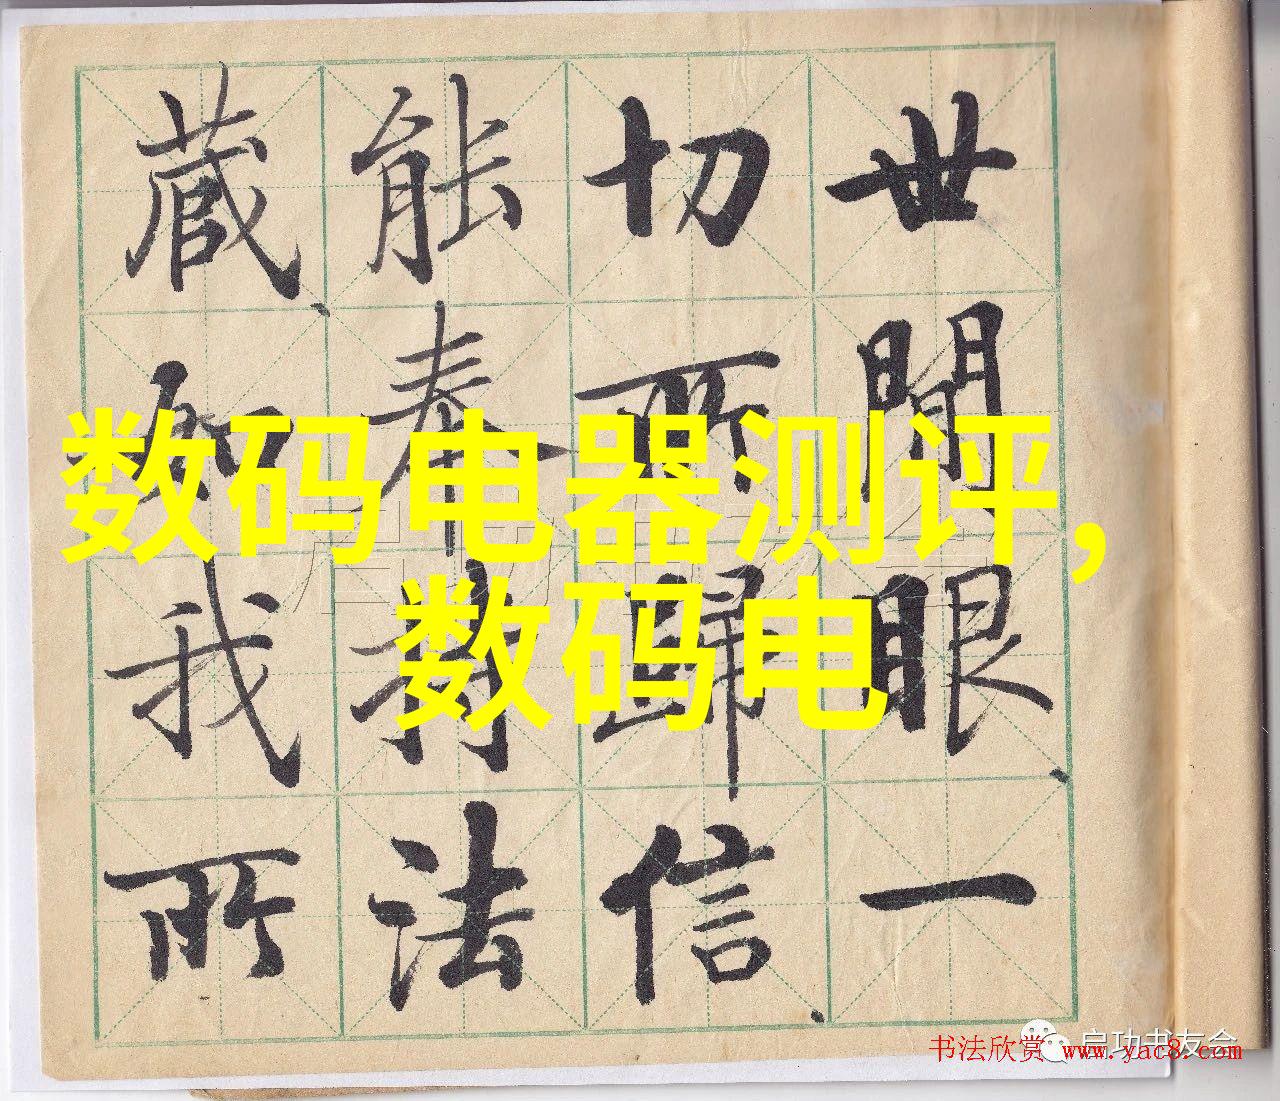 世間眼一
切所歸信
能奉持法
藏如我所
数码电器测评,
数码电
书法欣赏 www.yac8.com
启功书友会